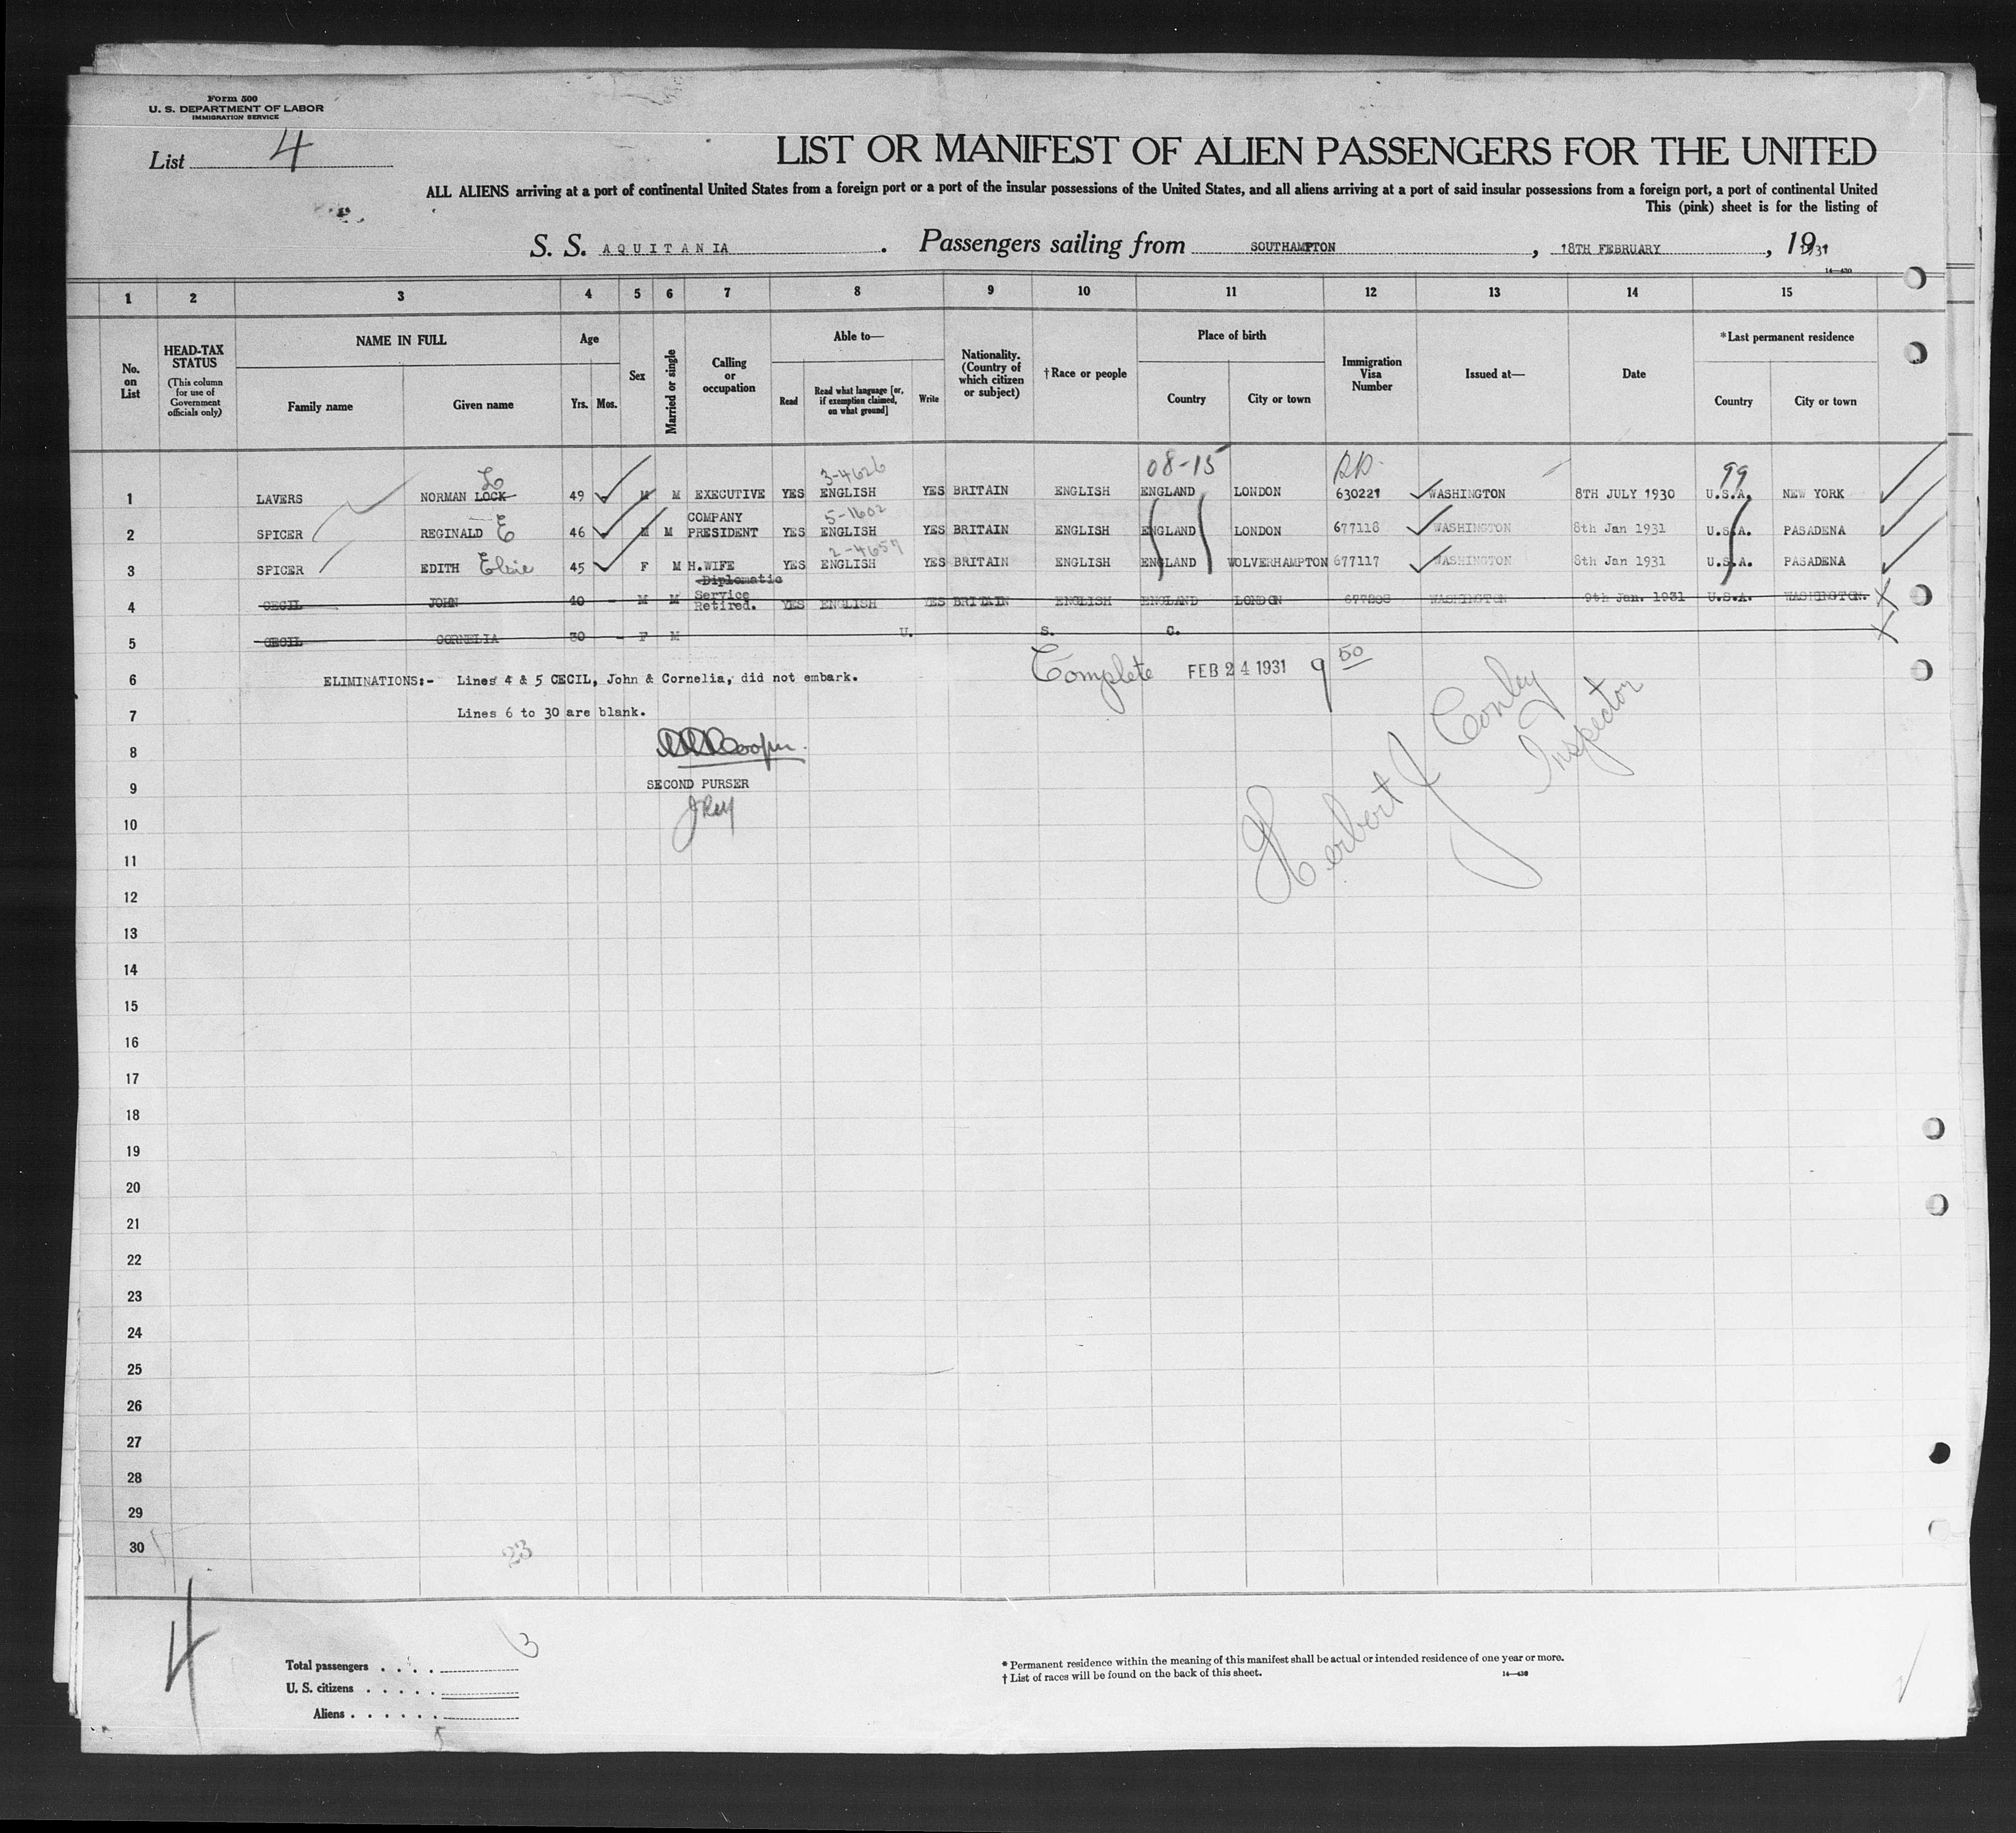 Form 500
U. S. DEPARTMENT OF LABOR
IMMIGRATION SERVICE
List 4
LIST OR MANIFEST OF ALIEN PASSENGERS FOR THE UNITED
ALL ALIENS arriving at a port of continental United States from a foreign port or a port of the insular possessions of the United States, and all aliens arriving at a port of said insular possessions from a foreign port, a port of continental United
This (pink) sheet is for the listing of
S. S. AQUITANIA . Passengers sailing from SOUTHAMPTON , 18TH FEBRUARY , 1931
14—430
1 2 3 4 5 6 7 8 9 10 11 12 13 14 15
No. on List
HEAD-TAX STATUS
(This column for use of Government officials only)
NAME IN FULL
Family name Given name
Age
Yrs. Mos.
Sex
Married or single
Calling or occupation
Able to—
Read
Read what language [or, if exemption claimed, on what ground]
Write
Nationality. (Country of which citizen or subject)
†Race or people
Place of birth
Country City or town
Immigration Visa Number
Issued at—
Date
*Last permanent residence
Country City or town
L 3-4626 08-15 99
1 LAVERS NORMAN LOCK 49 M M EXECUTIVE YES ENGLISH YES BRITAIN ENGLISH ENGLAND LONDON 630221 WASHINGTON 8TH JULY 1930 U.S.A. NEW YORK
COMPANY 5-1602
2 SPICER REGINALD E 46 M M PRESIDENT YES ENGLISH YES BRITAIN ENGLISH ENGLAND LONDON 677118 WASHINGTON 8th Jan 1931 U.S.A. PASADENA
2-4657
3 SPICER EDITH Elsie 45 F M H.WIFE YES ENGLISH YES BRITAIN ENGLISH ENGLAND WOLVERHAMPTON 677117 WASHINGTON 8th Jan 1931 U.S.A. PASADENA
Diplomatic
4 CECIL JOHN 40 - M M Service Retired. YES ENGLISH YES BRITAIN ENGLISH ENGLAND LONDON 677208 WASHINGTON 9th Jan. 1931 U.S.A. WASHINGTON. X
5 CECIL CORNELIA 30 - F M U. S. C. X
6 ELIMINATIONS:- Lines 4 & 5 CECIL, John & Cornelia, did not embark. Complete FEB 24 1931 9 50
7 Lines 6 to 30 are blank.
8 Cooper.
9 SECOND PURSER
Herbert J Conley
Inspector
10
11
12
13
14
15
16
17
18
19
20
21
22
23
24
25
26
27
28
29
30
23
4
3
Total passengers . . . .
U. S. citizens . . . . .
Aliens . . . . . .
* Permanent residence within the meaning of this manifest shall be actual or intended residence of one year or more.
† List of races will be found on the back of this sheet. 14—430